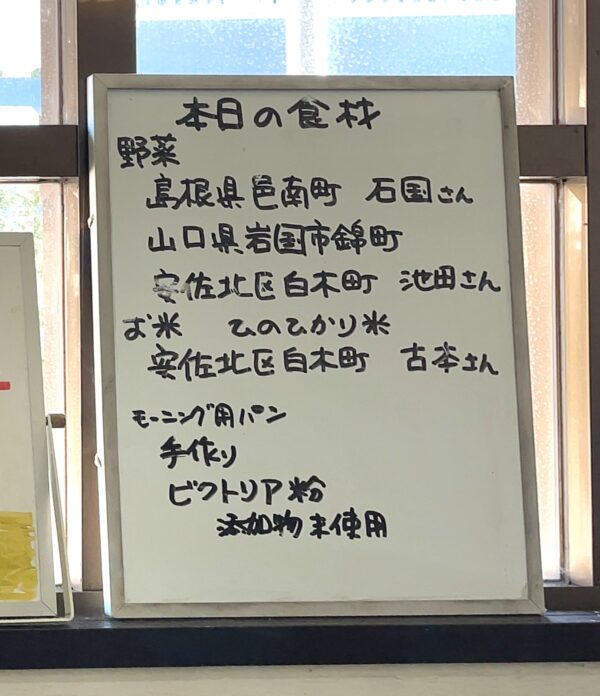 本日の食材
野菜
島根県邑南町 石国さん
山口県岩国市錦町
安佐北区白木町 池田さん
お米 ひのひかり米
安佐北区白木町 古本さん
モーニング用パン
手作り
ビクトリア粉
添加物未使用